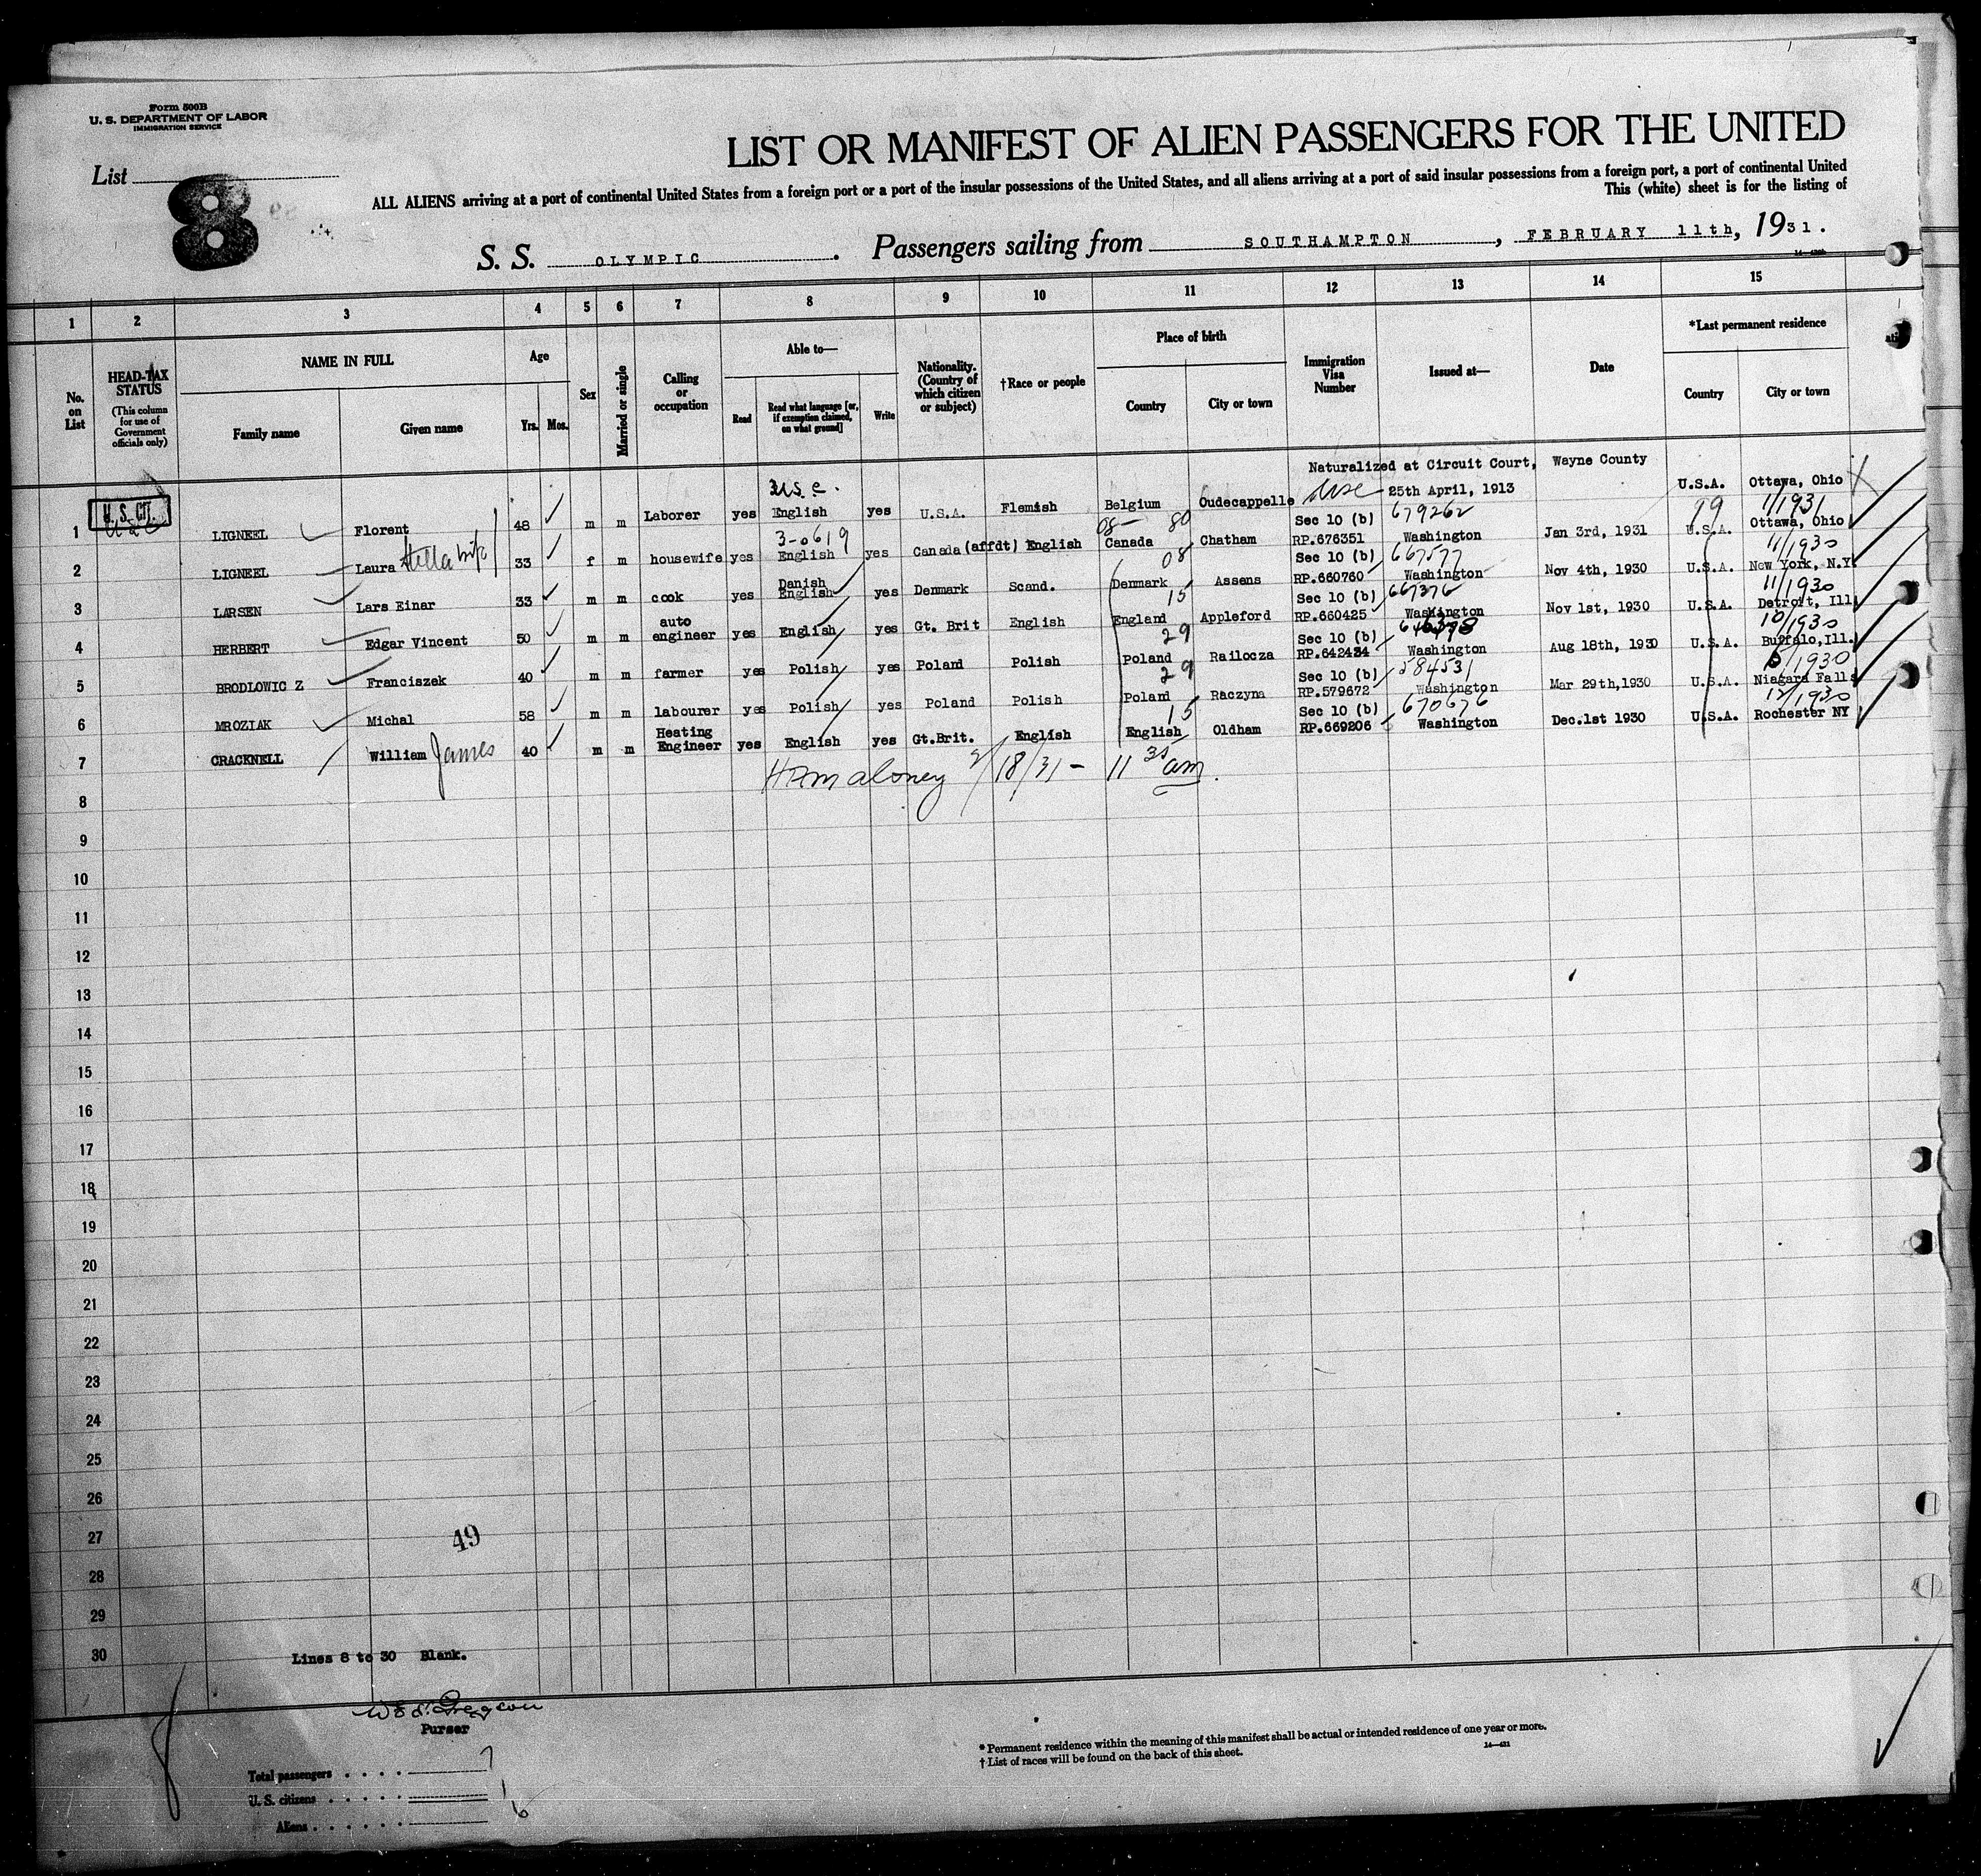 Form 500B
U. S. DEPARTMENT OF LABOR
IMMIGRATION SERVICE
List 8
LIST OR MANIFEST OF ALIEN PASSENGERS FOR THE UNITED
ALL ALIENS arriving at a port of continental United States from a foreign port or a port of the insular possessions of the United States, and all aliens arriving at a port of said insular possessions from a foreign port, a port of continental United
This (white) sheet is for the listing of
S. S. OLYMPIC . Passengers sailing from SOUTHAMPTON , FEBRUARY 11th, 1931.
1 2 3 4 5 6 7 8 9 10 11 12 13 14 15
No. on List
HEAD-TAX STATUS
(This column for use of Government officials only)
NAME IN FULL
Family name
Given name
Age
Yrs.
Mos.
Sex
Married or single
Calling or occupation
Able to—
Read
Read what language [or, if exemption claimed, on what ground]
Write
Nationality. (Country of which citizen or subject)
†Race or people
Place of birth
Country
City or town
Immigration Visa Number
Issued at—
Date
*Last permanent residence
Country
City or town
Naturalized at Circuit Court, Wayne County
U.S. CIT.
1 LIGNEEL Florent 48 m m Laborer yes English yes U.S.A. Flemish Belgium Oudecappelle 25th April, 1913 U.S.A. Ottawa, Ohio
3-0619 08- 80 Sec 10 (b) 679262 99 1/1931
2 LIGNEEL Laura Stella wife 33 f m housewife yes English yes Canada (affdt) English Canada Chatham RP.676351 Washington Jan 3rd, 1931 U.S.A. Ottawa, Ohio
Danish 08 Sec 10 (b) 667577 11/1930
3 LARSEN Lars Einar 33 m m cook yes English yes Denmark Scand. Denmark Assens RP.660760 Washington Nov 4th, 1930 U.S.A. New York, N.Y.
auto 15 Sec 10 (b) 667376 11/1930
4 HERBERT Edgar Vincent 50 m m engineer yes English yes Gt. Brit English England Appleford RP.660425 Washington Nov 1st, 1930 U.S.A. Detroit, Ill
29 Sec 10 (b) 10/1930
5 BRODLOWIC Z Franciszek 40 m m farmer yes Polish yes Poland Polish Poland Railocza RP.642434 Washington Aug 18th, 1930 U.S.A. Buffalo, Ill.
29 Sec 10 (b) 584531 /1930
6 MROZIAK Michal 58 m m labourer yes Polish yes Poland Polish Poland Raczyna RP.579672 Washington Mar 29th,1930 U.S.A. Niagara Falls
Heating 15 Sec 10 (b) 670676 12/1930
7 CRACKNELL William James 40 m m Engineer yes English yes Gt.Brit. English English Oldham RP.669206 Washington Dec.1st 1930 U.S.A. Rochester NY
Maloney 2/18/31 - 11 35 am.
8
9
10
11
12
13
14
15
16
17
18
19
20
21
22
23
24
25
26
27
49
28
29
30 Lines 8 to 30 Blank.
Purser
Total passengers . . . . 7
U. S. citizens . . . . . 1
Aliens . . . . . . 6
* Permanent residence within the meaning of this manifest shall be actual or intended residence of one year or more.
† List of races will be found on the back of this sheet.
14—421